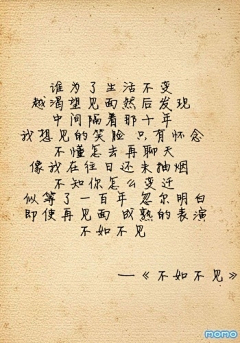 谁为了生活不变
越渴望见面然后发现
中间隔着那十年
我想见的笑脸 只有怀念
不懂怎去再聊天
像我在往日还未抽烟
不知你怎么变迁
似等了一百年 忽尔明白
即使再见面 成熟的表演
不如不见
—《不如不见》
momo